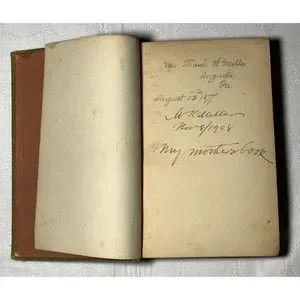 Mrs Frank H Miller
Augusta
Ga
August 13th 187
W K Miller
Nov 8/1908
My mothers book